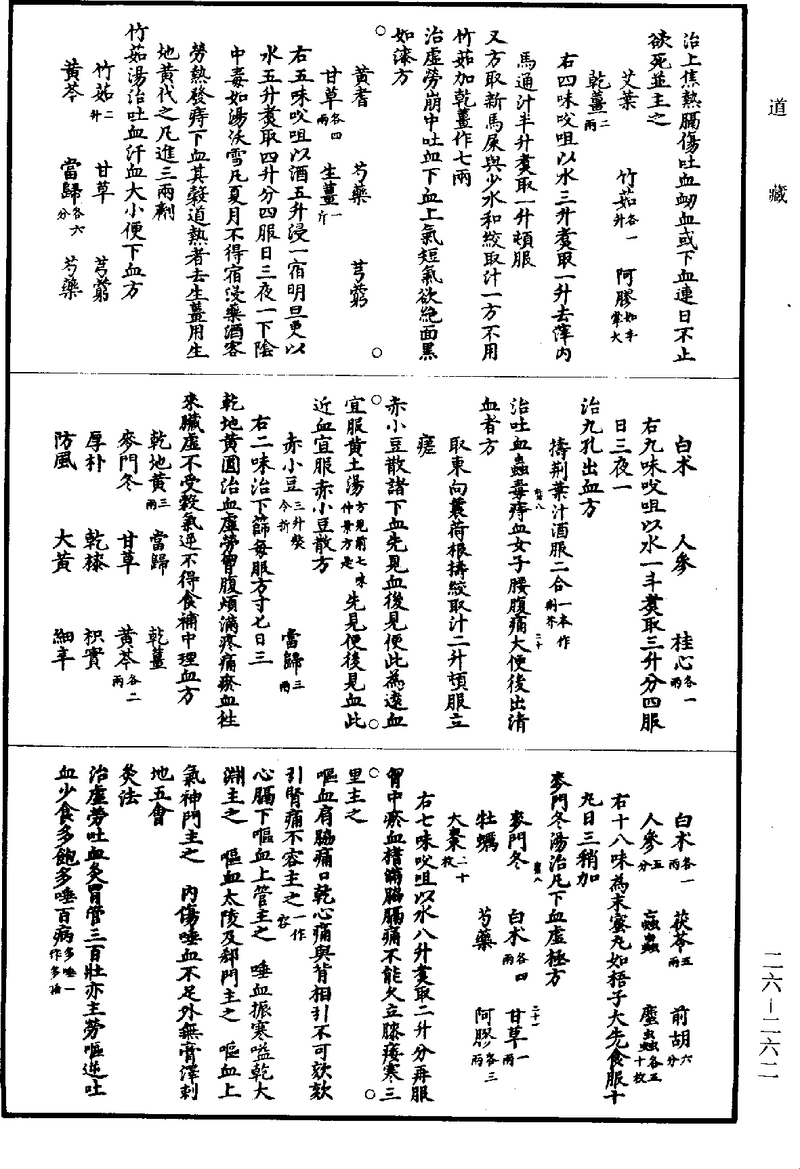 道藏
治上焦熱膈傷吐血衂血或下血連日不止
欲死並主之
艾葉　竹茹各一升　阿膠如手掌大
乾薑二兩
右四味㕮咀以水三升煑取一升去滓内
馬通汁半升煑取一升頓服
又方取新馬屎與少水和絞取汁一方不用
竹茹加乾薑作七兩
治虛勞崩中吐血下血上氣短氣欲絶面黑
如漆方
黄耆　芍藥　芎藭
甘草各四兩　生薑一斤
右五味㕮咀以酒五升浸一宿明旦更以
水五升煑取四升分四服日三夜一下陰
中毒如湯沃雪凡夏月不得宿浸藥酒客
勞熱發痔下血其榖道熱者去生薑用生
地黄代之凡進三兩劑
竹茹湯治吐血汗血大小便下血方
竹茹二升　甘草　芎藭
黄芩　當歸各六分　芍藥
白术　人參　桂心各一兩
右九味㕮咀以水一斗煑取三升分四服
日三夜一
治九孔出血方
擣荆葉汁酒服二合一本作荆芥
治吐血蟲毒痔血女子腰腹痛大便後出清
血者方
取東向蘘荷根擣絞取汁二升頓服立
瘥
赤小豆散諸下血先見血後見便此為遠血
宜服黄土湯方見前七味仲景方是先見便後見血此
近血宜服赤小豆散方
赤小豆三升熬令折　當歸三兩
右二味治下篩每服方寸匕日三
乾地黄圓治血虛勞胷腹煩滿疼痛瘀血往
來臓虛不受榖氣逆不得食補中理血方
乾地黄三兩　當歸　乾薑
麥門冬　甘草　黄芩各二兩
厚朴　乾漆　枳實
防風　大黄　細辛
白术各一兩　茯苓五兩　前胡六分
人參五分　䖟蟲　䗪蟲各五十枚
右十八味為末蜜丸如梧子大先食服十
九日三稍加
麥門冬湯治凡下血虛極方
麥門冬　白术各四兩　甘草一兩
牡蠣　芍藥　阿膠各三兩
大棗二十枚
右七味㕮咀以水八升煑取二升分再服
胷中瘀血榰滿脇膈痛不能久立膝痿寒三
里主之
嘔血肩脇痛口乾心痛與背相引不可欬欬
引腎痛不容主之一作容
心膈下嘔血上管主之　唾血振寒嗌乾太
淵主之　嘔血太陵及郄門主之　嘔血上
氣神門主之　内傷唾血不足外無膏澤刺
地五會
灸法
治虛勞吐血灸胃管三百壯亦主勞嘔逆吐
血少食多飽多唾百病多唾一作多睡
二六—二六二